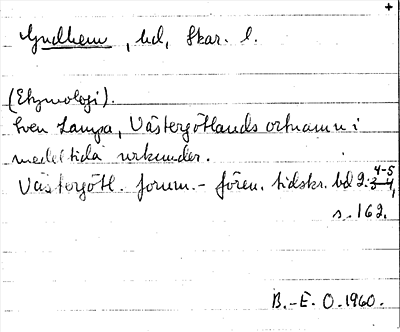 +
Gudhem, hd, Skar. l.
(Etymologi).
Sven Lampa, Västergötlands ortnamn i
medeltida urkunder.
Västergötl. fornm.- fören. tidskr. bd 2: 4-5
s. 162.
B.-E. O. 1960.